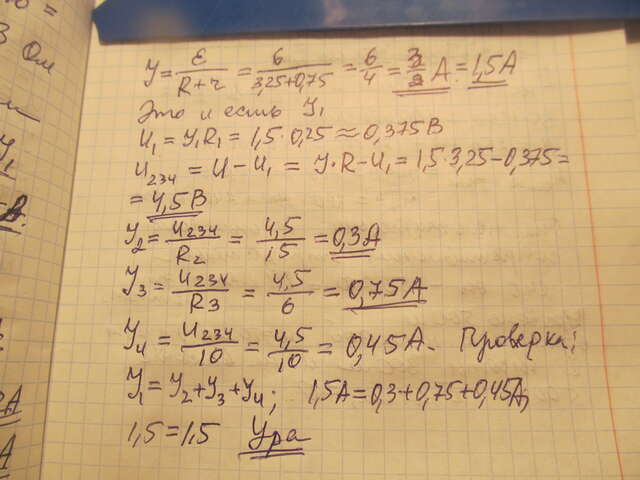 0 =
3 Ом
У = ε / R+r = 6 / 3,25+0,75 = 6/4 = 3/2 А = 1,5А
Это и есть У₁
U₁ = У₁R₁ = 1,5·0,25 ≈ 0,375В
U₂₃₄ = U - U₁ = У·R - U₁ = 1,5·3,25-0,375=
= 4,5В
У₂ = U₂₃₄ / R₂ = 4,5 / 15 = 0,3А
У₃ = U₂₃₄ / R₃ = 4,5 / 6 = 0,75А
У₄ = U₂₃₄ / 10 = 4,5 / 10 = 0,45А. Проверка:
У₁ = У₂+У₃+У₄; 1,5А=0,3+0,75+0,45А
1,5=1,5 Ура